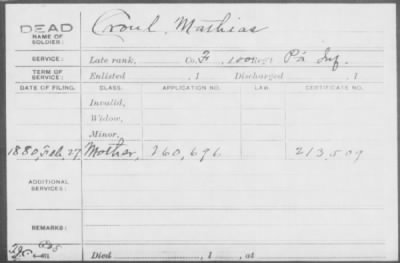 DEAD Croul, Mathias
NAME OF SOLDIER:
SERVICE: Late rank, Co. F, 100 Reg't Pa Inf.
TERM OF SERVICE: Enlisted , 1 Discharged , 1
DATE OF FILING. CLASS. APPLICATION NO. LAW. CERTIFICATE NO.
Invalid,
Widow,
Minor,
1880, Feb. 27 Mother, 260,696 213,509
ADDITIONAL SERVICES:
REMARKS:
Died , 1 , at